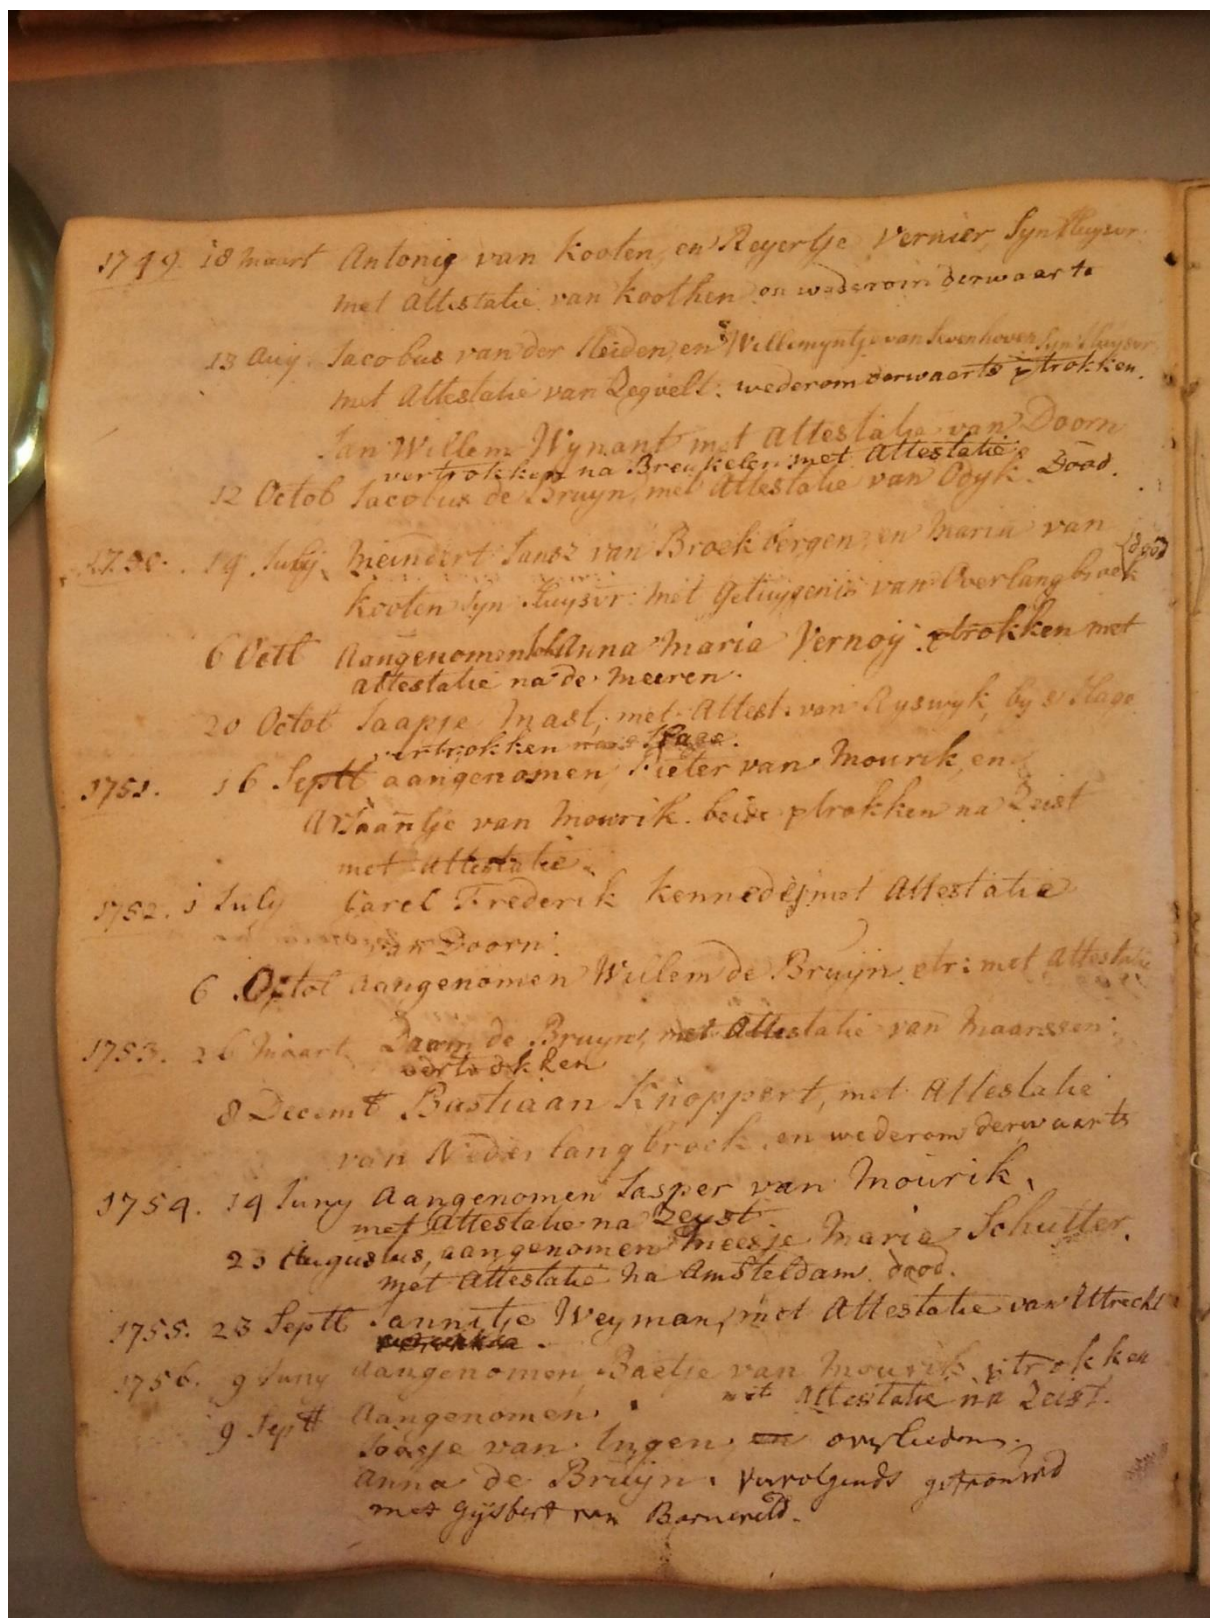 1749. 18 Maart Antonij van Kooten, en Reyertje Vernier, Syn Huysvr.
met Attestatie van Koothen en wederom derwaarts
13 Aug. Jacobus van der Heiden, en Willemyntje van Sevenhoven Syn Huysvr
met Attestatie van Zegvelt. wederom derwaarts ptrokken.
Jan Willem Wynant met Attestatie van Doorn
vertrokken na Breukelen met Attestatie
12 Octob Jacobus de Bruyn, met Attestatie van Odyk. Dood.
1750. 14 July Meindert Jansz van Broekbergen, en Maria van
dood
Kooten Syn Huysvr. met Getuygenis van Overlangbroek
6 Octt Aangenomen Anna Maria Vernoij. ptrokken met
attestatie na de Meeren.
20 Octob Jaapje Mast, met Attest. van Ryswyk, by s Hage
vertrokken na s Hage.
1751. 16 Septt aangenomen, Pieter van Mourik, en
Adriaantje van Mourik. beide ptrokken na Zeist
met Attestatie.
1752. 1 July Carel Frederik Kennedij met Attestatie
van Doorn.
6 Octob Aangenomen Willem de Bruijn. ptr: met Attestatie
1753. 26 Maart Daam de Bruyn, met Attestatie van Maarssen.
vertrokken
8 Decemb Bastiaan Knoppert, met Attestatie
van Nederlangbroek. en wederom derwaarts
1754. 14 Juny Aangenomen Jasper van Mourik.
met Attestatie na Zeyst
23 Augustus, aangenomen Meesje Maria Schutter.
met Attestatie na Amsteldam. dood.
1755. 23 Septt Jannitje Weyman, met Attestatie van Uttrecht
1756. 9 Juny Aangenomen, Baetje van Mourik, ptrokken
met Attestatie na Zeist.
9 Septt Aangenomen
van Ingen, en overlieden.
Anna de Bruijn. vervolgends getrouwd
met Gijsbert van Barneveld.